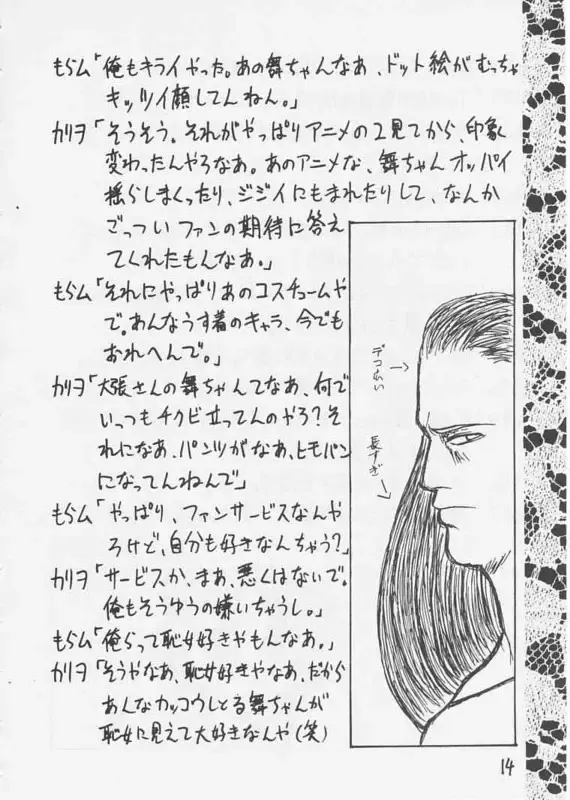 もらム「俺もキライやった。あの舞ちゃんなあ、ドット絵がむっちゃ
キッツイ顔してんねん。」
カリヲ「そうそう。それがやっぱりアニメの2見てから、印象
変わったんやろなあ。あのアニメな、舞ちゃんオッパイ
揺らしまくったり、ジジイにもまれたりして、なんか
ごっつい ファンの期待に答え
てくれたもんなあ。」
もらム「それにやっぱりあのコスチュームや
で。あんなうす着のキャラ、今でも
おれへんで。」
カリヲ「大張さんの舞ちゃんてなあ、何で
いっつもチクビ立ってんのやろ?そ
れになあ、パンツがなあ、ヒモパン
になってんねんで」
もらム「やっぱり、ファンサービスなんや
ろけど、自分も好きなんちゃう?」
カリヲ「サービスか、まあ、悪くはないで。
俺もそうゆうの嫌いちゃうし。」
もらム「俺らって恥女好きやもんなあ。」
カリヲ「そうやなあ、恥女好きやなあ、だから
あんなカッコウしとる舞ちゃんが
恥女に見えて大好きなんや(笑)
デコ広い→
長すぎ→
14